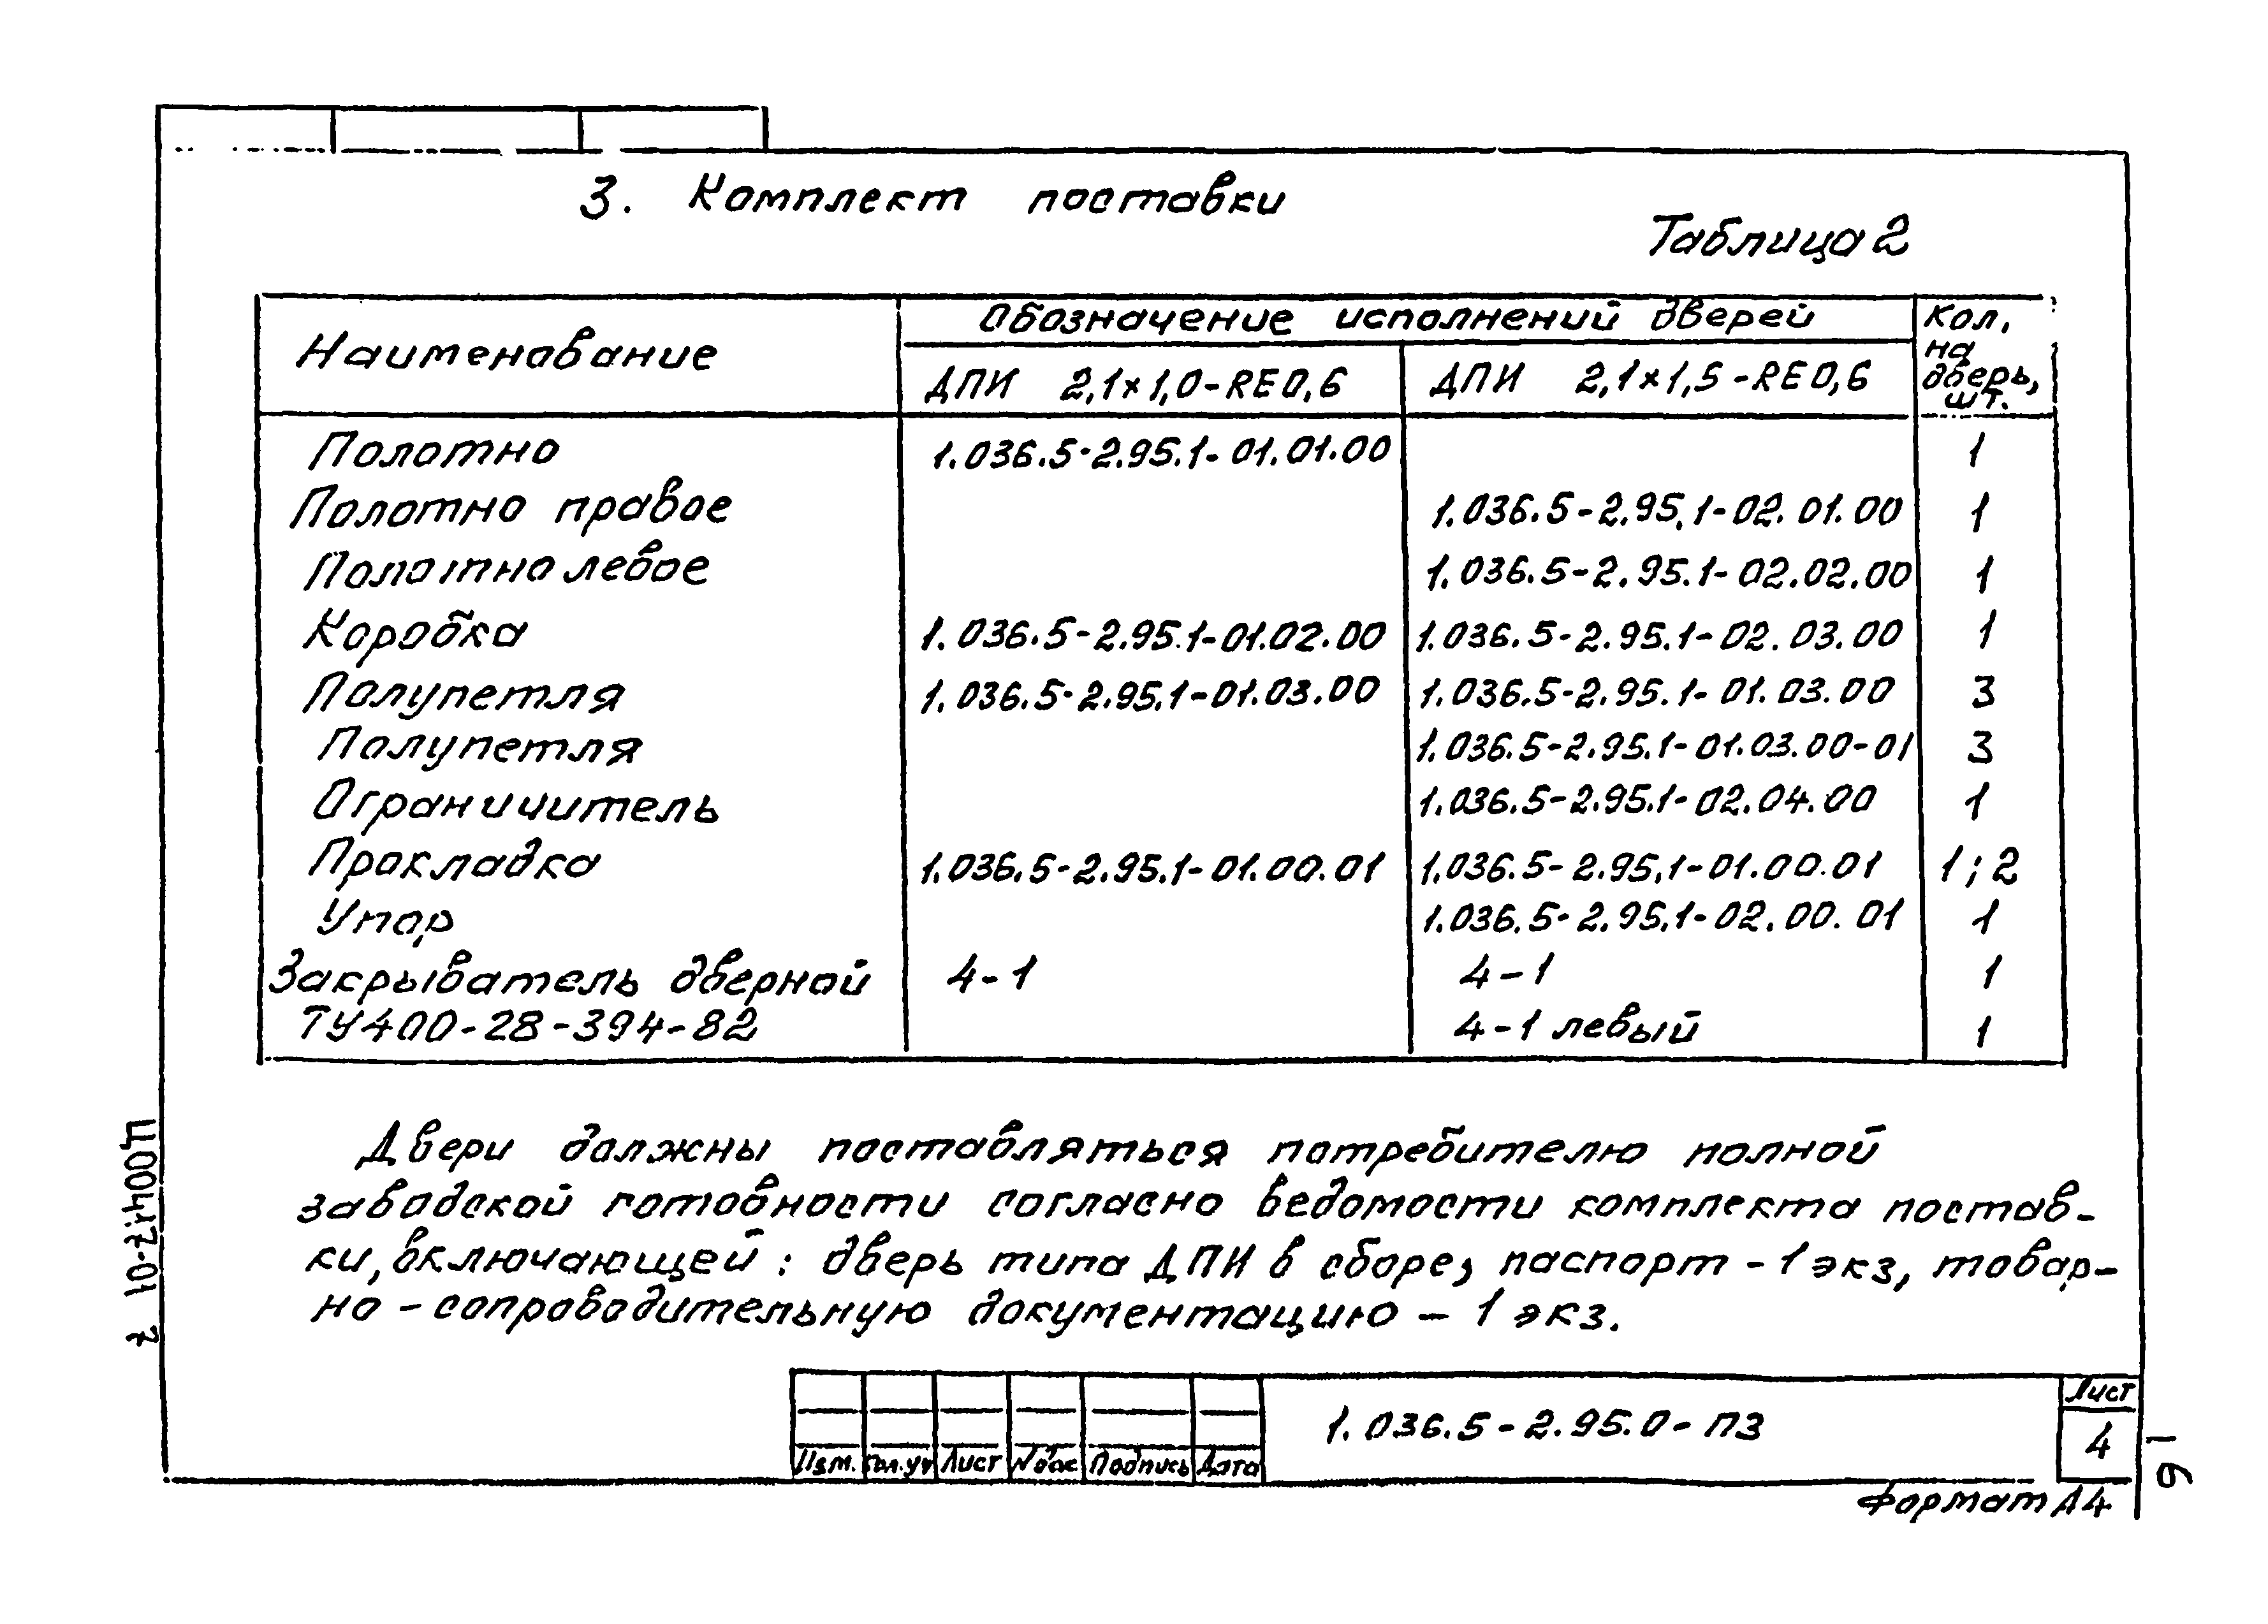 3. Комплект поставки
Таблица 2
Наименование
Обозначение исполнений дверей
Кол.
на
дверь,
шт.
ДПИ 2,1×1,0-RE0,6
ДПИ 2,1×1,5-RE0,6
Полотно 1.036.5-2.95.1-01.01.00 1
Полотно правое 1.036.5-2.95.1-02.01.00 1
Полотно левое 1.036.5-2.95.1-02.02.00 1
Коробка 1.036.5-2.95.1-01.02.00 1.036.5-2.95.1-02.03.00 1
Полупетля 1.036.5-2.95.1-01.03.00 1.036.5-2.95.1-01.03.00 3
Полупетля 1.036.5-2.95.1-01.03.00-01 3
Ограничитель 1.036.5-2.95.1-02.04.00 1
Прокладка 1.036.5-2.95.1-01.00.01 1.036.5-2.95.1-01.00.01 1;2
Упор 1.036.5-2.95.1-02.00.01 1
Закрыватель дверной 4-1 4-1 1
ТУ400-28-394-82 4-1 левый 1
Двери должны поставляться потребителю полной
заводской готовности согласно ведомости комплекта постав-
ки, включающей: дверь типа ДПИ в сборе, паспорт - 1 экз, товар-
но-сопроводительную документацию - 1 экз.
Ц00417-01 7
1.036.5-2.95.0-ПЗ
Лист
4
Изм. Кол.уч Лист №док Подпись Дата
Формат А4
6